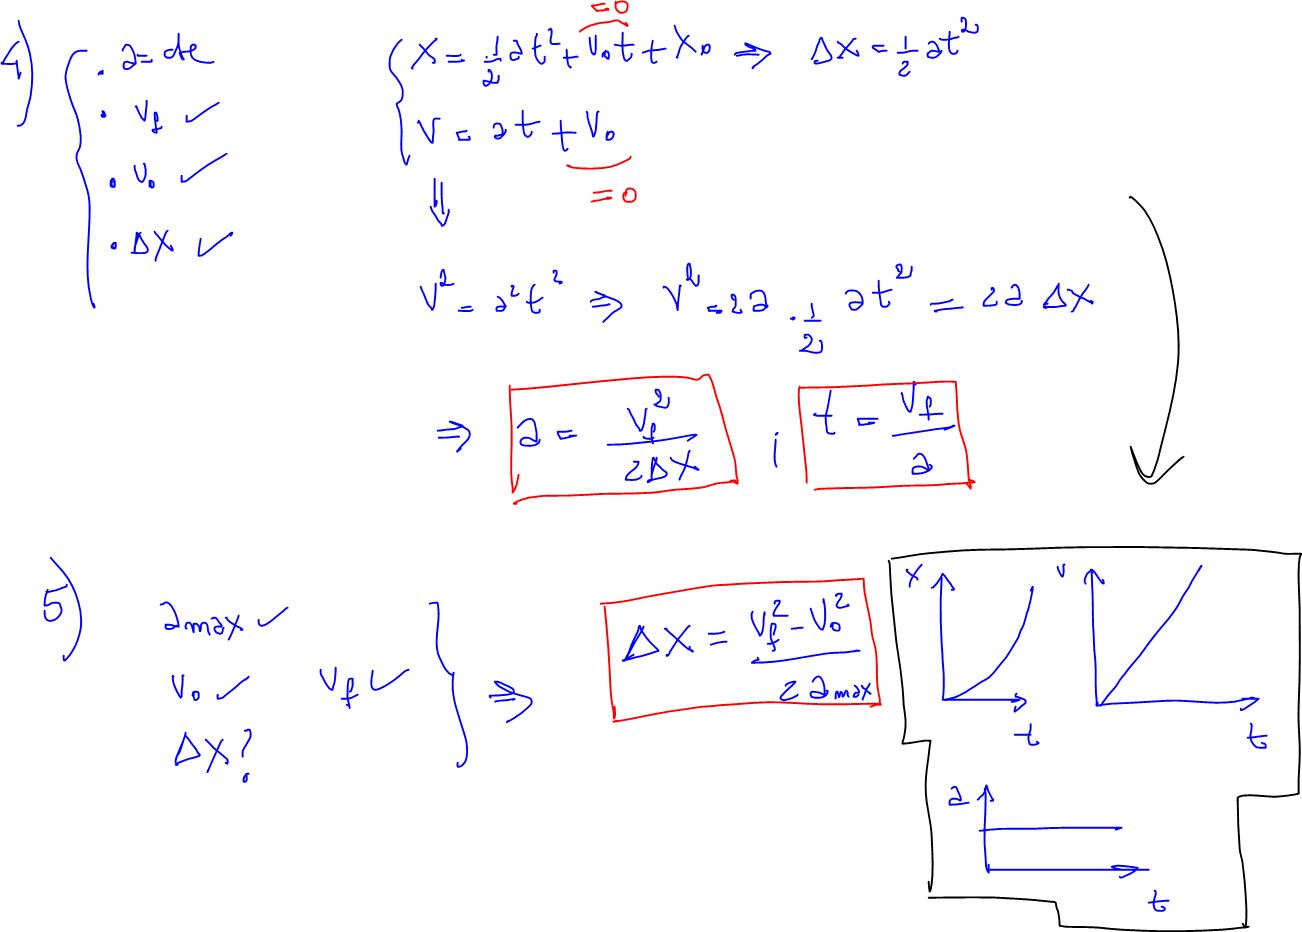 4)
. a = cte
. Vf ✓
. V₀ ✓
. ΔX ✓
X = 1/2 at² + V₀t + X₀ ⇒ ΔX = 1/2 at²
= 0
V = at + V₀
= 0
⇓
V² = a²t² ⇒ V² = 2a · 1/2 at² = 2a ΔX
⇒ a = Vf²/2ΔX i t = Vf/a
5)
amax ✓
V₀ ✓ Vf ✓
ΔX?
⇒ ΔX = Vf² - V₀²/2 amax
X
t
V
t
a
t